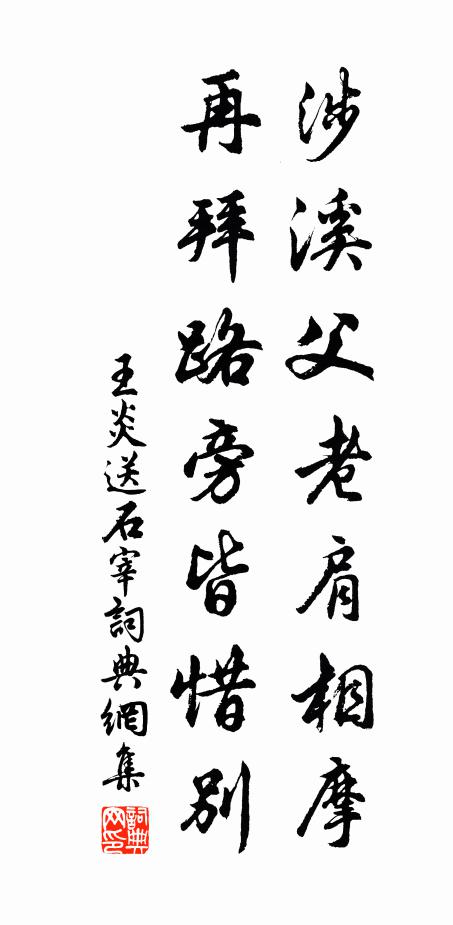 涉溪父老肩相摩
再拜路旁皆惜別
王炎送石宰詞典網集
詞典网印